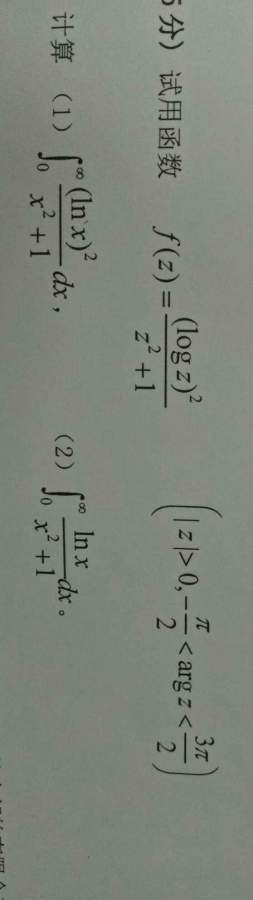 5分) 试用函数 f(z) = (log z)²/(z² + 1) (|z| > 0, -π/2 < arg z < 3π/2)
计算 (1) ∫₀^∞ (ln x)²/(x² + 1) dx, (2) ∫₀^∞ ln x/(x² + 1) dx。